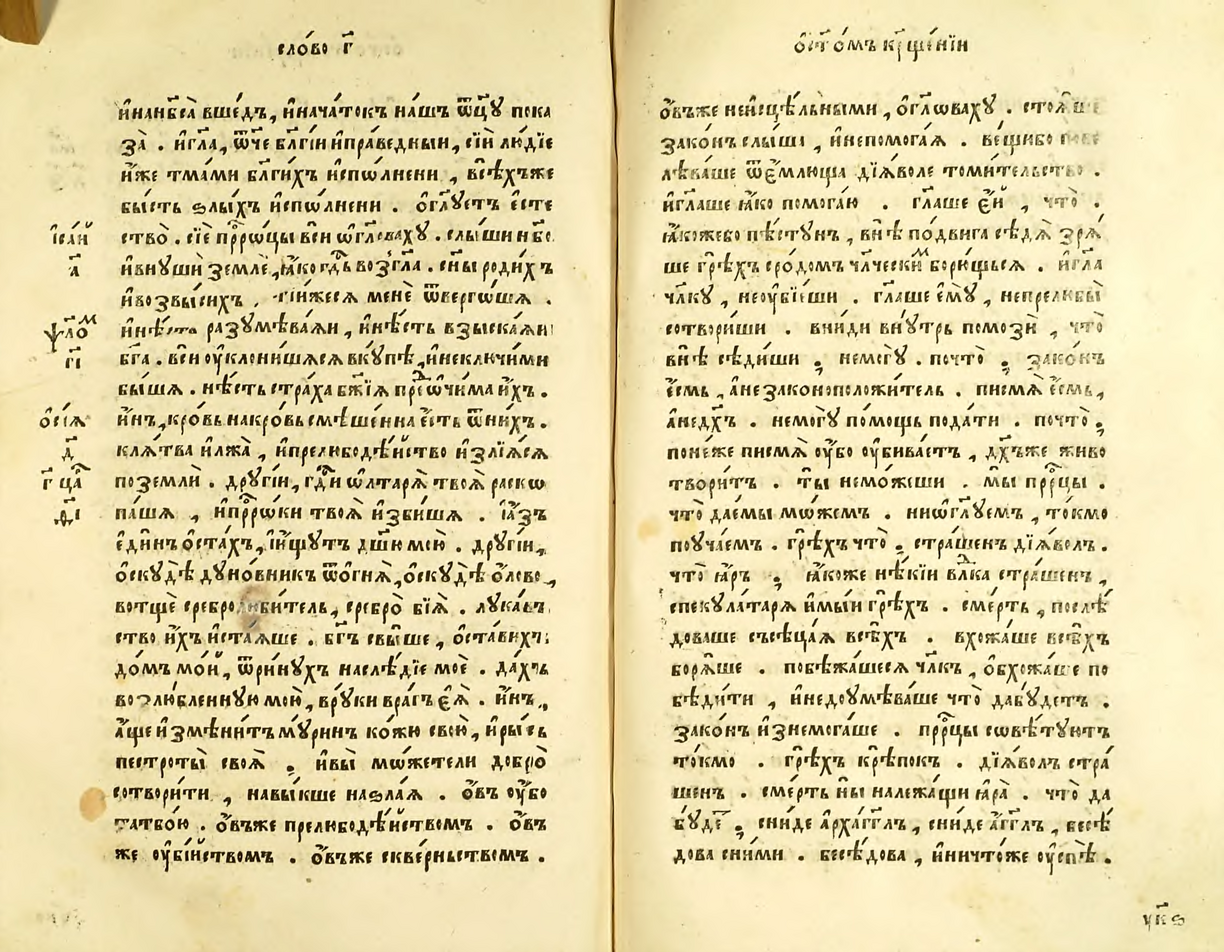 сло́во г҃
и҆нанб҃са̀ вше́дъ, и҆нача́токъ на́шъ ѿц҃ꙋ̀ пока
за̀ . и҆гл҃а, ѿ́че бл҃гі́и и҆пра́ведныи, сїи̑ лю́дїе
и҆́же тма́ми бл҃ги́хъ и҆спо́лнени , всѣ́хъже
бы́сть ѕлы́хъ и҆спѡ́лнени . ѻ҆гл҃ꙋетъ є҆сте
ство̀ . сїѐ прⷪ҇ро́цы вси ѡ҆гл҃оваху . слы́ши нб҃о
и҆внꙋшѝ землѐ, ꙗ҆́ко гдⷭ҇ь возгл҃а . сн҃ы роди́хъ
и҆возвы́сихъ . ті́и же сѧ̀ менѐ ѿверго́шѧ .
и҆нѣ́сть разꙋмѣва́ѧи , и҆нѣ́сть взыска́ѧи
бг҃а . вси ѹ҆клони́шѧсѧ вкꙋ́пѣ, и҆неключи́ми
бы́шѧ . нѣ́сть стра́ха бж҃їѧ преⷣѡ҆чи́ма и҆́хъ .
и҆́нъ, кро́вь накро́вь смѣ́шенна є҆́сть ѿни́хъ .
клѧ́тва и҆лжа̀ , и҆прелюбодѣ́йство и҆злїѧ́сѧ
поземлѝ . дрꙋгі́и, гдⷭ҇и ѡ҆лтарѧ̀ твоѧ̀ раско
па́шѧ , и҆прⷪ҇ро́ки твоѧ̀ и҆зби́шѧ . і҆а́зъ
є҆ди́нъ ѻ҆ста́хъ, и҆и́щꙋтъ дш҃ю мою̀ . дрꙋгі́и,
ѻ҆скꙋдѣ̀ дꙋновни́къ ѿѻ҆гнѧ̀, ѻ҆скꙋдѣ̀ ѻ҆́лово,
вотщѐ сребролюби́тель, сребро̀ бїѧ̀ . лꙋка́въ
ство и҆́хъ и҆ста́ѧше . бг҃ъ свы́ше , ѻ҆ста́вихъ
до́мъ мо́и, ѿри́нꙋхъ наслѣ́дїе моѐ . да́хъ
возлю́бленнꙋю мою̀, врꙋки вра́гъ є҆ѧ̀ . и҆́нъ,
а҆́ще и҆змѣни́тъ мꙋ́ринъ ко́жю свою̀, и҆ры́сь
пестроты̀ своѧ̀ . и҆вы̀ мо́жетели добро̀
сотвори́ти , навы́кше наѕла́ѧ . ѻ҆́въ ѹ҆́бо
татбо́ю . ѻ҆́въже прелюбодѣ́йствомъ . ѻ҆́въ
же ѹ҆бі́йствомъ . ѻ҆́въже скве́рньствомъ .
і҆са́и
а҃
ѱало́м
г҃і
ѻ҆сі́ѧ
д҃
г҃ цр҃
ѻ҆ст҃о́мъ кр҃ще́нїи
ѻ҆́въже неи҆сцѣ́льными , ѻ҆гл҃оваху .
зако́нъ слы́ша , и҆непомога́ѧ .
лѣва́ше ѿе҆́млюща дїѧ́воле томи́тельство .
и҆гл҃аше ꙗ҆́ко помога́ю . гл҃аше є҆́и , что̀ .
ꙗ҆́кожебо пѣстꙋ́нъ , внѣ̀ по́двига сѣдѧ̀ зрѧ́
ше грѣ́хъ сро́домъ чл҃чески́м борю́щьсѧ . и҆гл҃а
чл҃кꙋ , неѹ҆бі́еши . гл҃аше є҆мꙋ , непрелюбы̀
сотвори́ши . вни́ди внꙋ́трь помозѝ , что̀
внѣ̀ сѣди́ши ; немогꙋ̀ . почто̀ ; зако́нъ
є҆́смь , а҆незаконоположи́тель . писмѧ̀ є҆́смь,
а҆недх҃ъ . немогꙋ̀ по́мощь пода́ти . почто̀ ;
поне́же писмѧ̀ ѹ҆́бо ѹ҆бива́етъ , дх҃ъже живо
твори́тъ . ты̀ немо́жеши . мы̀ прⷪ҇рцы .
что̀ дае҆мы̀ мо́жемъ . ниѡ҆гл҃ꙋемъ , то́кмо
поꙋча́емъ . грѣ́хъ что̀ ; стра́шенъ дїѧ́волъ .
что̀ ꙗ҆́ръ ; ꙗ҆́коже нѣ́кїи влⷣка стра́шенъ ,
спекꙋлатарѧ̀ и҆мы́и грѣ́хъ . сме́рть , послѣ́
доваше съсѣца́ѧ всѣ́хъ . вхожа́ше всѣ́хъ
борѧ́ше . побѣжа́шесѧ чл҃къ , ѻ҆бхожа́ше по
бѣди́ти , и҆недоꙋмѣва́ше что̀ дабꙋ́детъ .
зако́нъ и҆знемога́ше . прⷪ҇рцы совѣ́тꙋютъ
то́кмо . грѣ́хъ крѣ́покъ . дїѧ́волъ стра́
шенъ . сме́рть ны належа́щи ꙗ҆ра̀ . что̀ да
бꙋ́де ; сни́де а҆рха́гг҃лъ , сни́де а҆́гг҃лъ , бесѣ́
дова сни́ми . бесѣ́дова , и҆ничто́же ѹ҆спѣ̀ .
ѵ҃кѕ